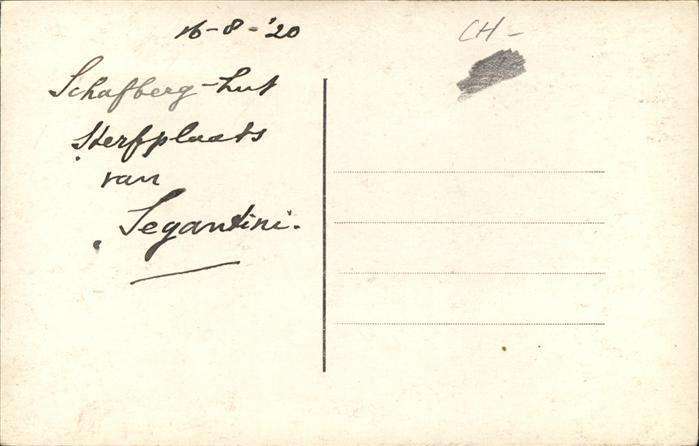 16-8-'20
CH-
Schafberg-hut
Sterfplaats
van
Segantini.